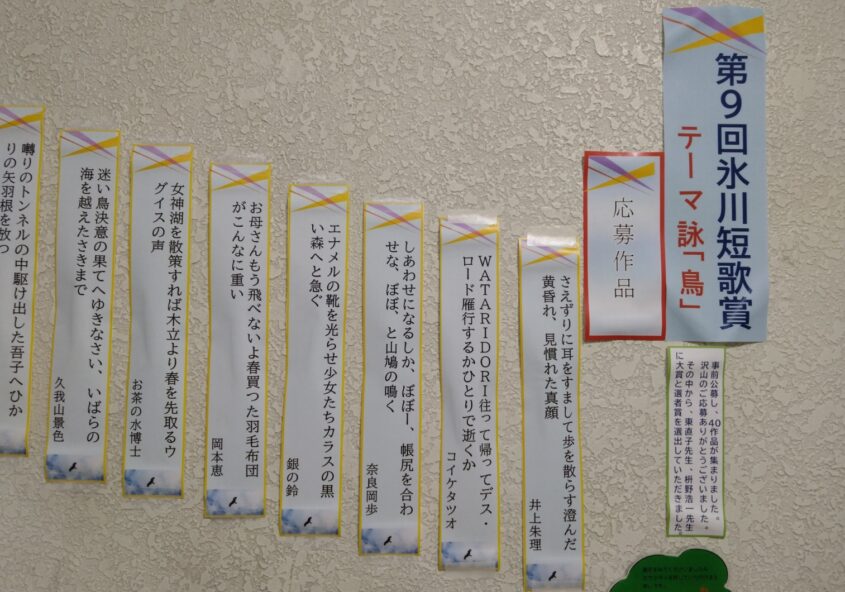 第9回氷川短歌賞
テーマ詠「鳥」
応募作品
事前公募し、40作品が集まりました。
沢山のご応募ありがとうございました。
その中から、東直子先生、枡野浩一先生
に大賞と選者賞を選出していただきました。
さえずりに耳をすまして歩を散らす澄んだ
黄昏れ、見慣れた真顔
井上朱理
WATARIDORI往って帰ってデス・
ロード雁行するかひとりで逝くか
コイケタツオ
しあわせになるしか、ぼぼー、帳尻を合わ
せな、ぼぼ、と山鳩の鳴く
奈良岡歩
エナメルの靴を光らせ少女たちカラスの黒
い森へと急ぐ
銀の鈴
お母さんもう飛べないよ春買った羽毛布団
がこんなに重い
岡本恵
女神湖を散策すれば木立より春を先取るウ
グイスの声
お茶の水博士
迷い鳥決意の果てへゆきなさい、いばらの
海を越えたさきまで
久我山景色
囀りのトンネルの中駆け出した吾子へひか
りの矢羽根を放つ